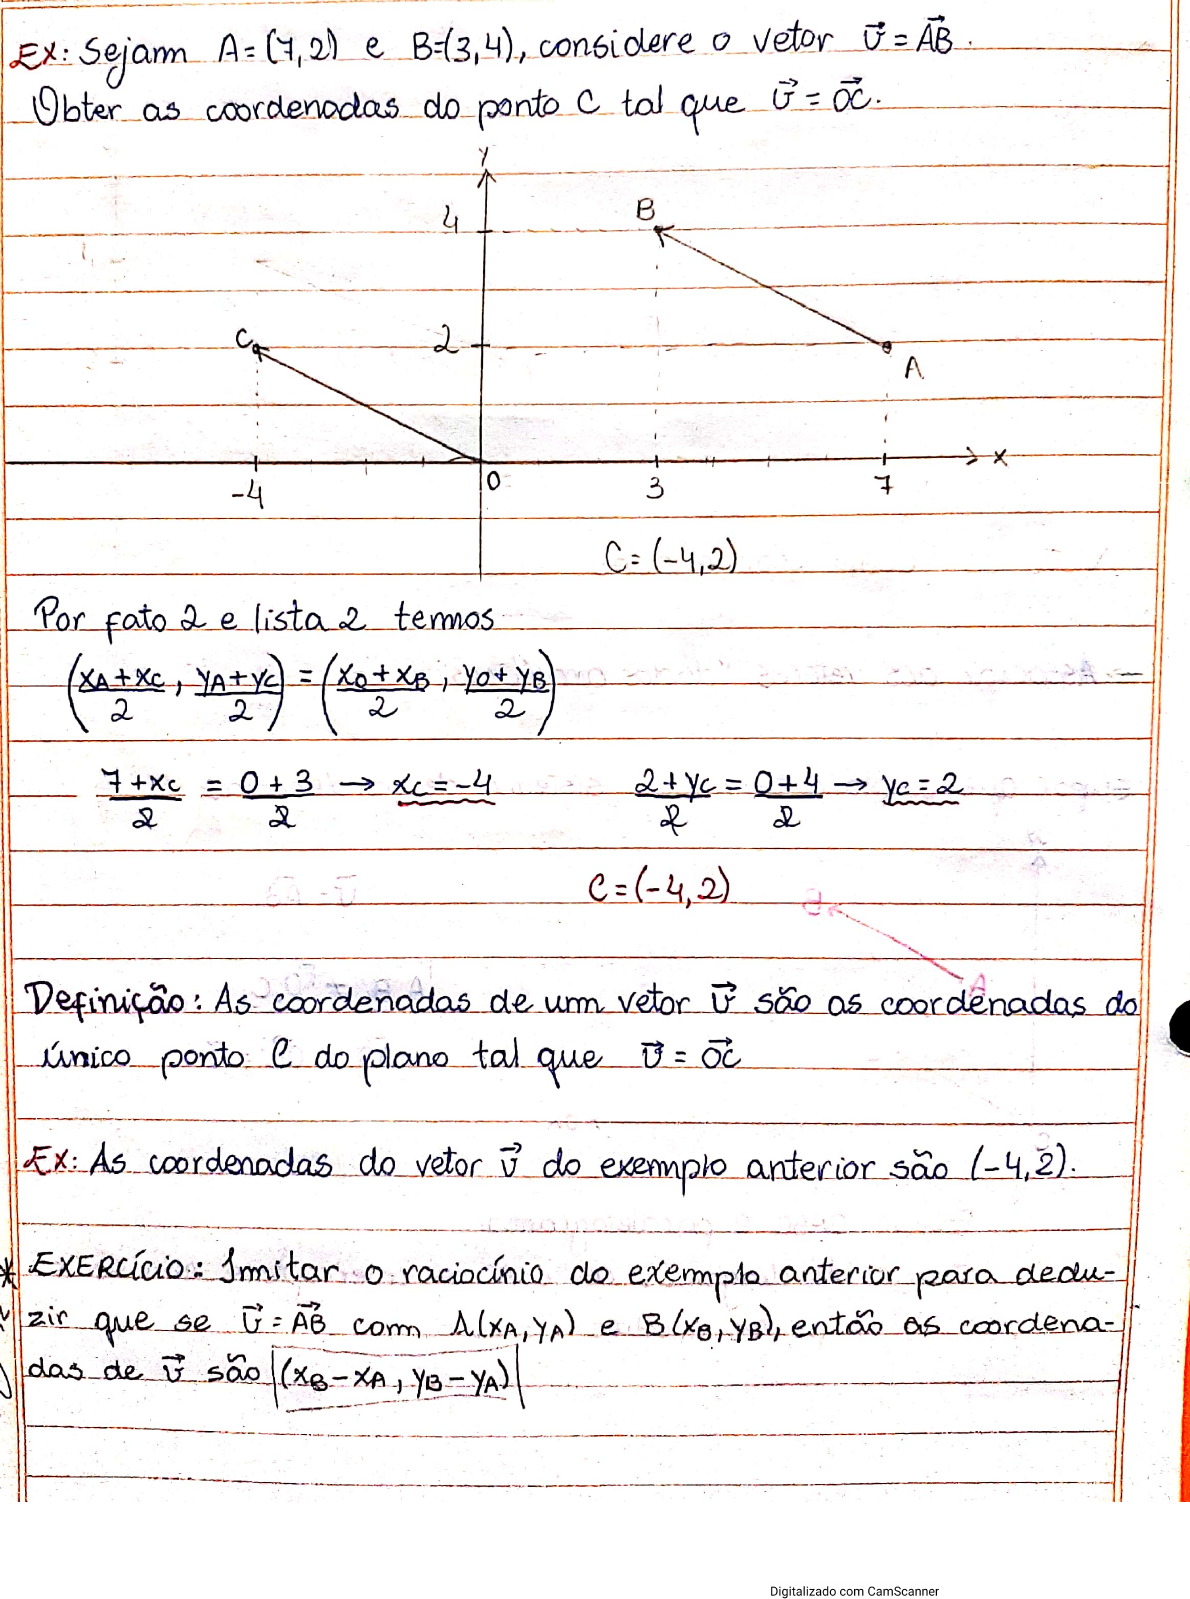 Ex: Sejam A=(7,2) e B=(3,4), considere o vetor v⃗ = AB⃗.
Obter as coordenadas do ponto C tal que v⃗ = OC⃗.
y
4
B
C
2
A
x
-4
0
3
7
C=(-4,2)
Por fato 2 e lista 2 temos
(xA+xC/2, yA+yC/2) = (xO+xB/2, yO+yB/2)
7+xC/2 = 0+3/2 → xC=-4 2+yC/2 = 0+4/2 → yC=2
C=(-4,2)
Definição: As coordenadas de um vetor v⃗ são as coordenadas do
único ponto C do plano tal que v⃗ = OC⃗
Ex: As coordenadas do vetor v⃗ do exemplo anterior são (-4,2).
* EXERCÍCIO: Imitar o raciocínio do exemplo anterior para dedu-
zir que se v⃗ = AB⃗ com A(xA, yA) e B(xB, yB), então as coordena-
das de v⃗ são (xB-xA, yB-yA)
Digitalizado com CamScanner